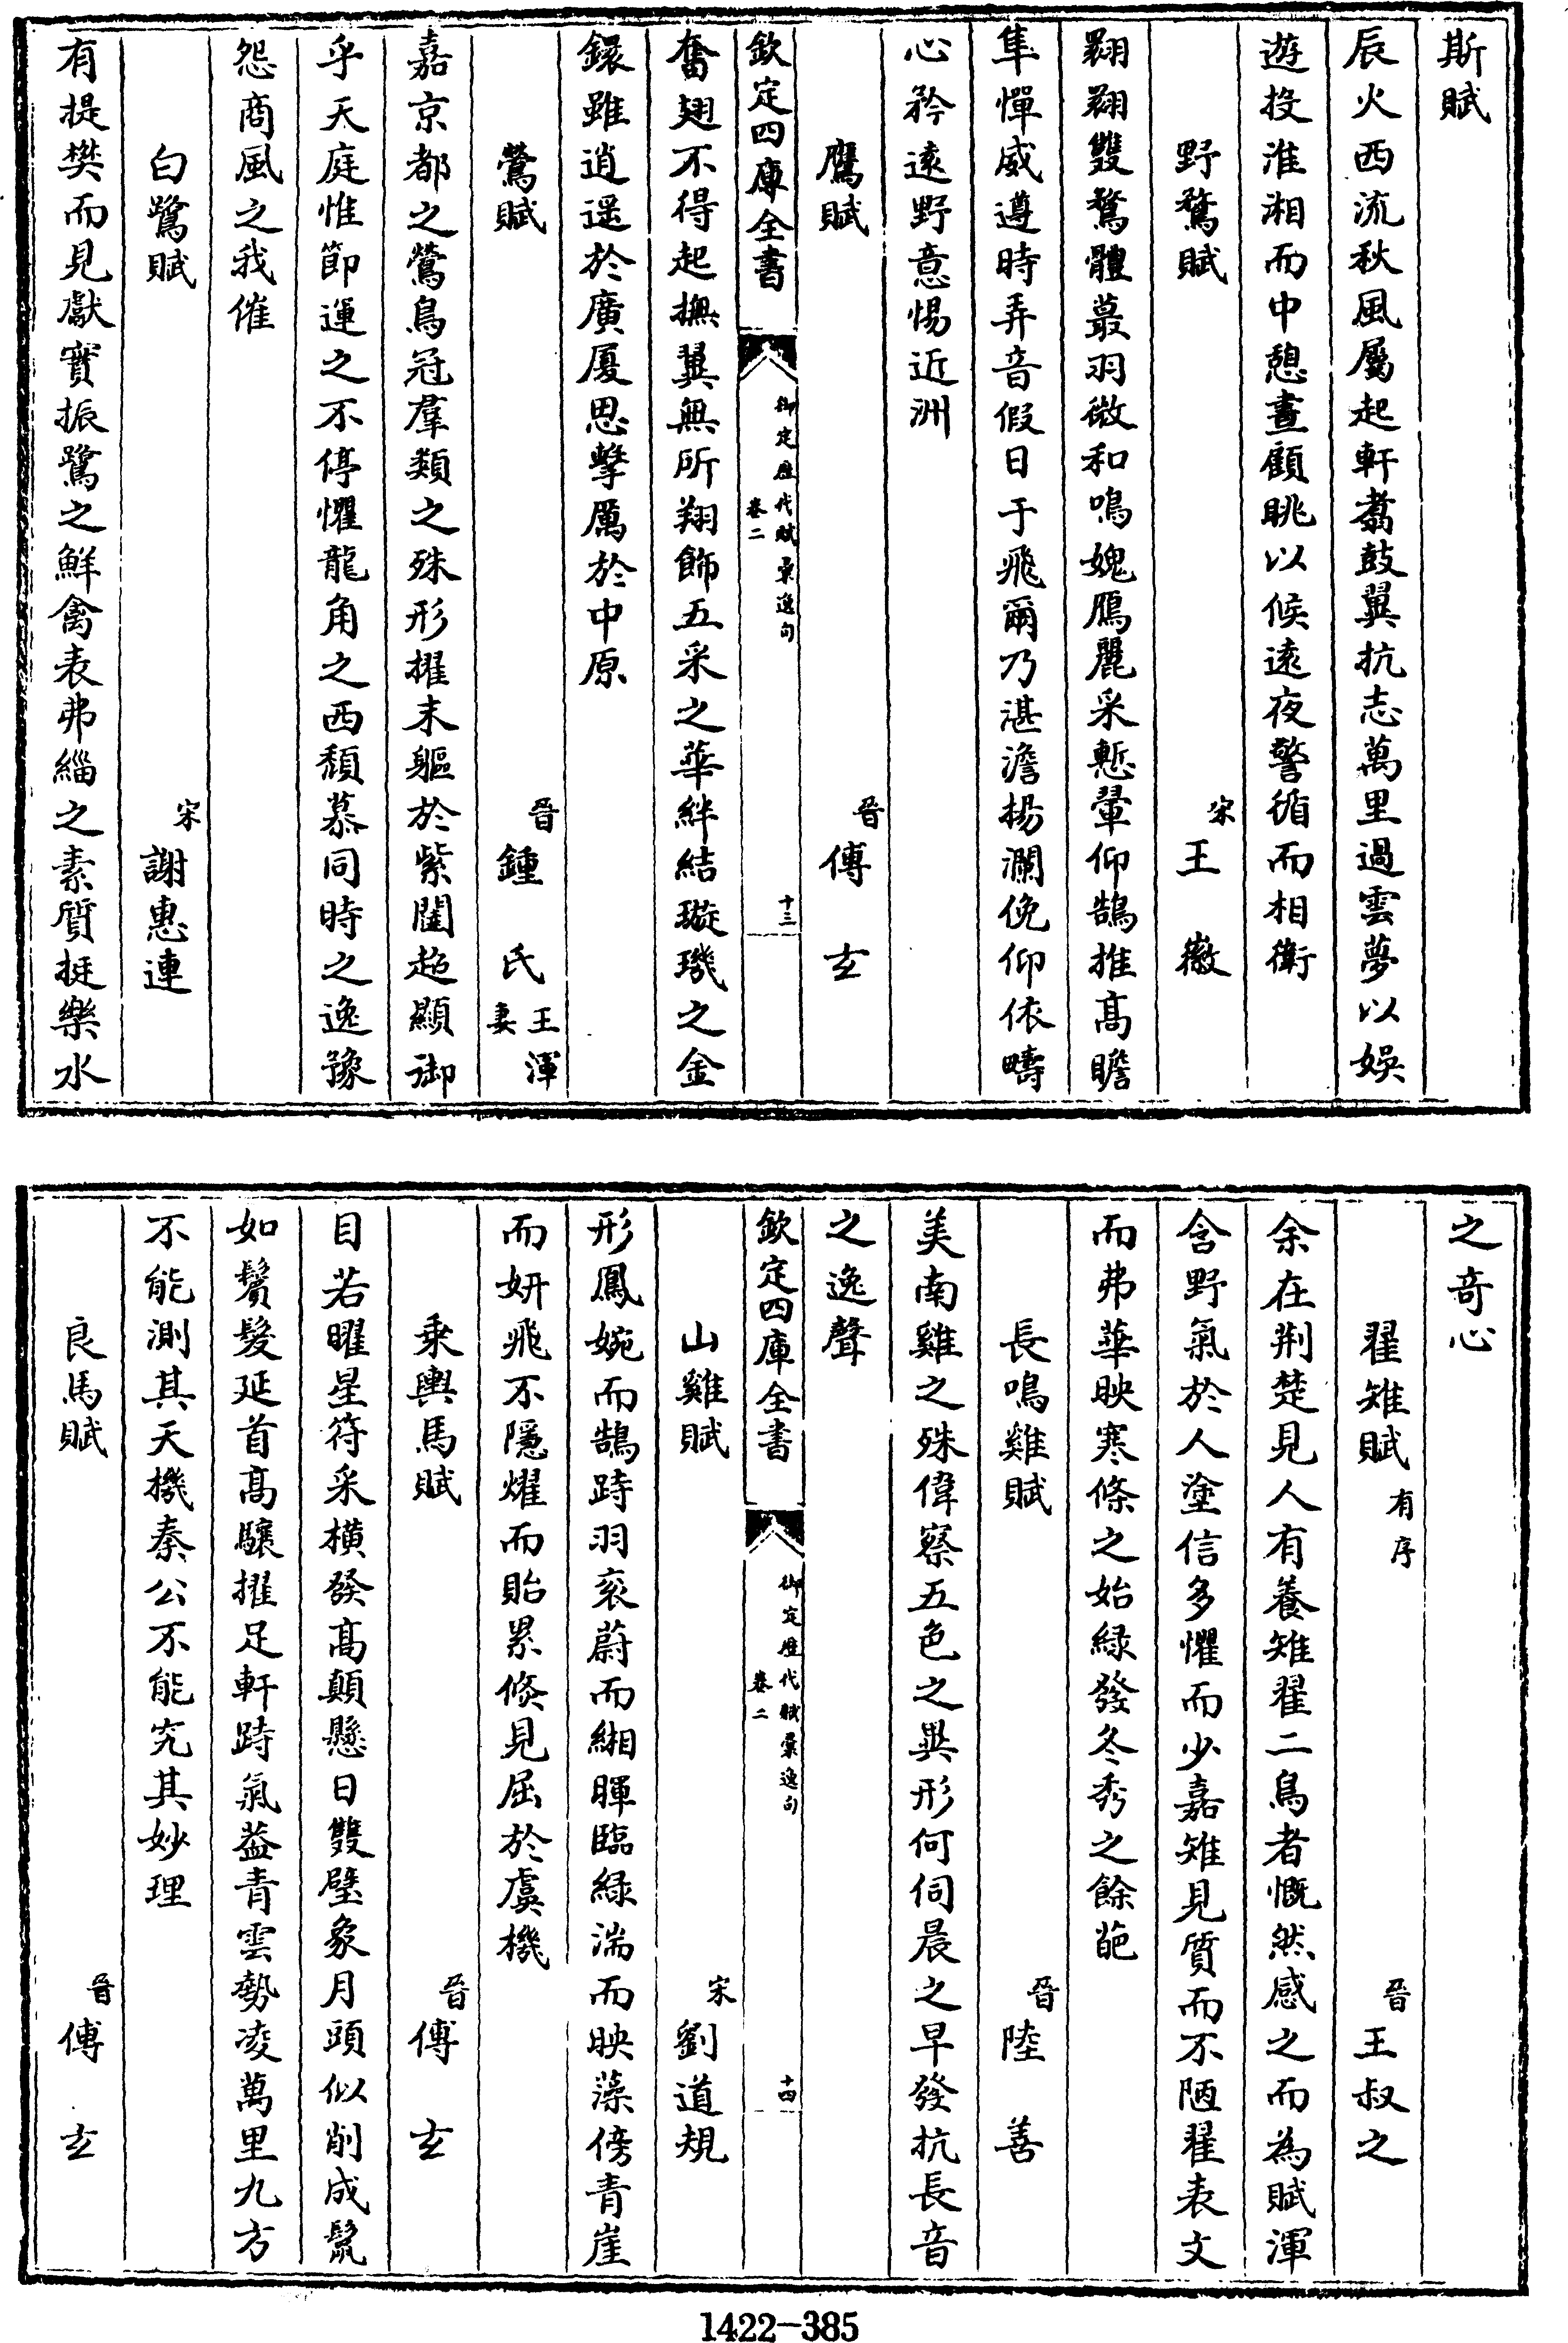 斯賦
辰火西流秋風厲起軒翥鼓翼抗志萬里過雲夢以娛
遊投淮湘而中憩晝顧眺以候遠夜警循而相衛
野鶩賦 宋 王徽
翾翾雙鶩體蕞羽微和鳴媿鴈麗采慙翬仰鵠推高瞻
隼憚威遵時弄音假日于飛爾乃湛澹揚瀾俛仰依疇
心矜遠野意惕近洲
鷹賦 晉 傅玄
欽定四庫全書 御定歷代賦彙逸句 卷二 十三
奮翅不得起撫翼無所翔飾五采之華絆結璇璣之金
鐶雖逍遥於廣厦思擊厲於中原
鶯賦 晉 鍾氏 王渾妻
嘉京都之鶯鳥冠羣類之殊形擢末軀於紫闥超顯御
乎天庭惟節運之不停懼龍角之西頹慕同時之逸豫
怨商風之我催
白鷺賦 宋 謝惠連
有提樊而見獻實振鷺之鮮禽表弗緇之素質挺樂水
之奇心
翟雉賦 有序 晉 王叔之
余在荆楚見人有養雉翟二鳥者慨然感之而為賦渾
含野氣於人塗信多懼而少嘉雉見質而不陋翟表文
而弗華映寒條之始緑發冬秀之餘葩
長鳴雞賦 晉 陸善
美南雞之殊偉察五色之異形何伺晨之早發抗長音
之逸聲
欽定四庫全書 御定歷代賦彙逸句 卷二 十四
山雞賦 宋 劉道規
形鳳婉而鵠跱羽衮蔚而緗暉臨緑湍而映藻傍青崖
而妍飛不隱燿而貽累倐見屈於虞機
乘輿馬賦 晉 傅玄
目若曜星符采横發高顛懸日雙壁象月頭似削成鬣
如鬒髮延首高驤擢足軒跱氣葢青雲勢凌萬里九方
不能測其天機秦公不能究其妙理
良馬賦 晉 傅玄
1422-385